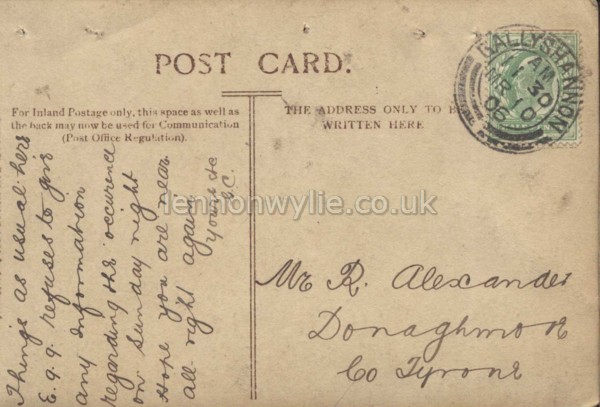 POST CARD.
For Inland Postage only, this space as well as
the back may now be used for Communication
(Post Office Regulation).
THE ADDRESS ONLY TO BE
WRITTEN HERE
BALLYSHANNON
1 30 AM
MR 10
06
Things as usual here
E.g.g. refuses to give
any information
regarding the occurence
on Sunday night
Hope you are near
all right again
Yours etc
G.C.
Mr R. Alexander
Donaghmore
Co Tyrone
lennonwylie.co.uk